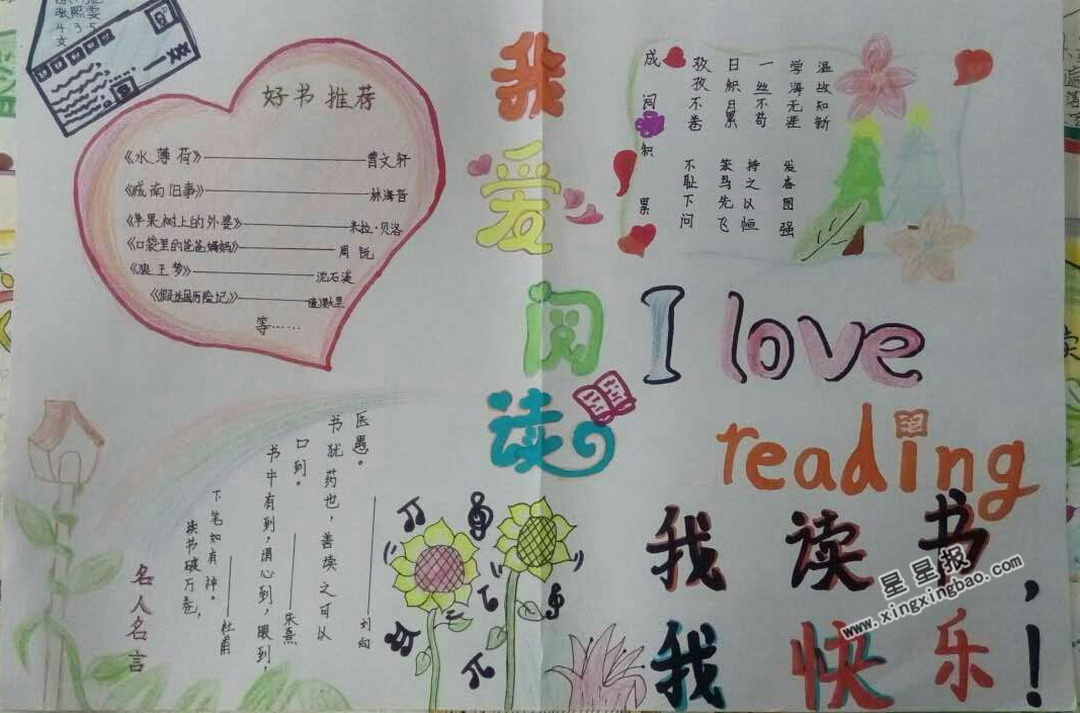 张熙雯
435
女
XXX
好书推荐
《水薄荷》——曹文轩
《城南旧事》——林海音
《苹果树上的外婆》——米拉·贝洛
《口袋里的爸爸妈妈》——周锐
《狼王梦》——沈石溪
历险记》
等……
我爱阅读
温故知新
学海无涯
一丝不苟
日积月累
孜孜不倦
发奋图强
持之以恒
笨鸟先飞
不耻下问
I love
reading
名人名言
读书破万卷，
下笔如有神。
——杜甫
书中有到，谓心到，眼到，
口到。
——朱熹
书犹药也，善读之可以
医愚。
——刘向
我读书，
我快乐！
星星报
www.xingxingbao.com